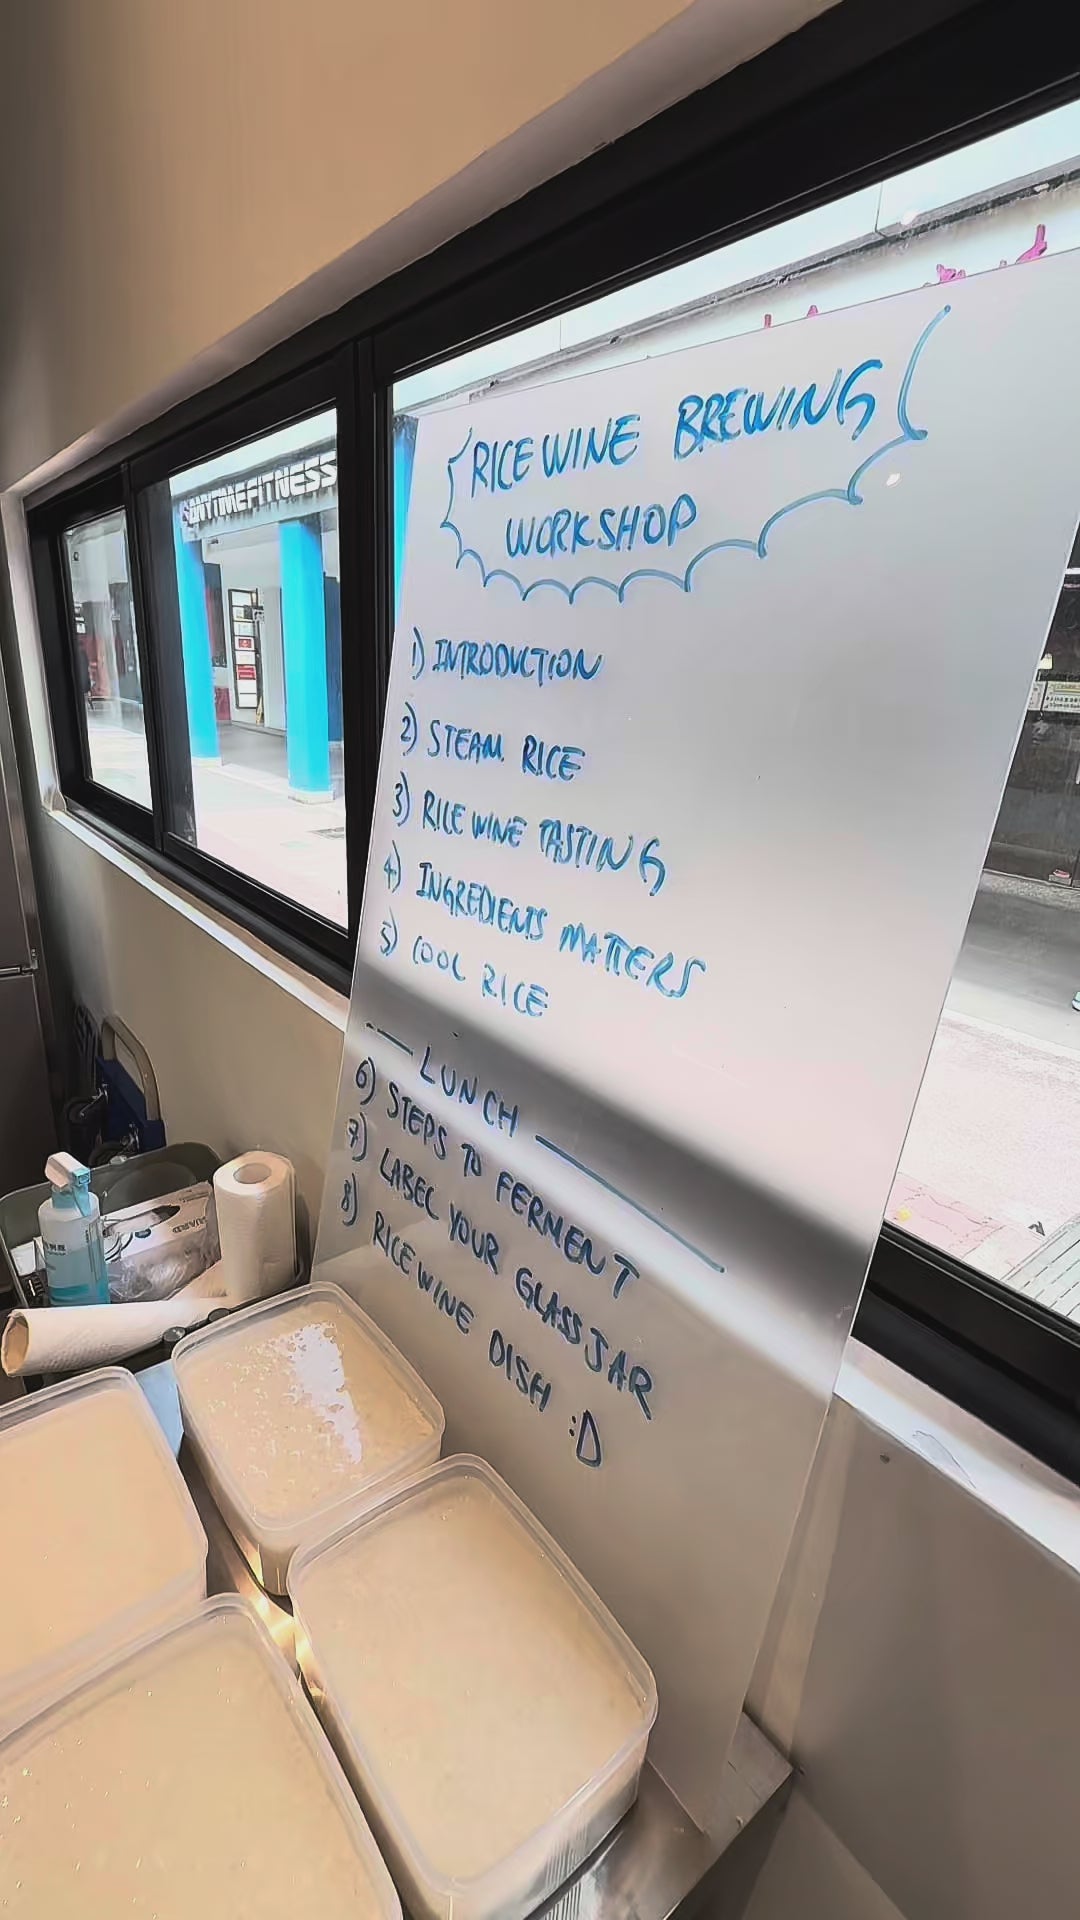 ANYTIME FITNESS
RICE WINE BREWING
WORKSHOP
1) INTRODUCTION
2) STEAM RICE
3) RICE WINE TASTING
4) INGREDIENTS MATTERS
5) COOL RICE
LUNCH
6) STEPS TO FERMENT
7) LABEL YOUR GLASS JAR
8) RICE WINE DISH :D